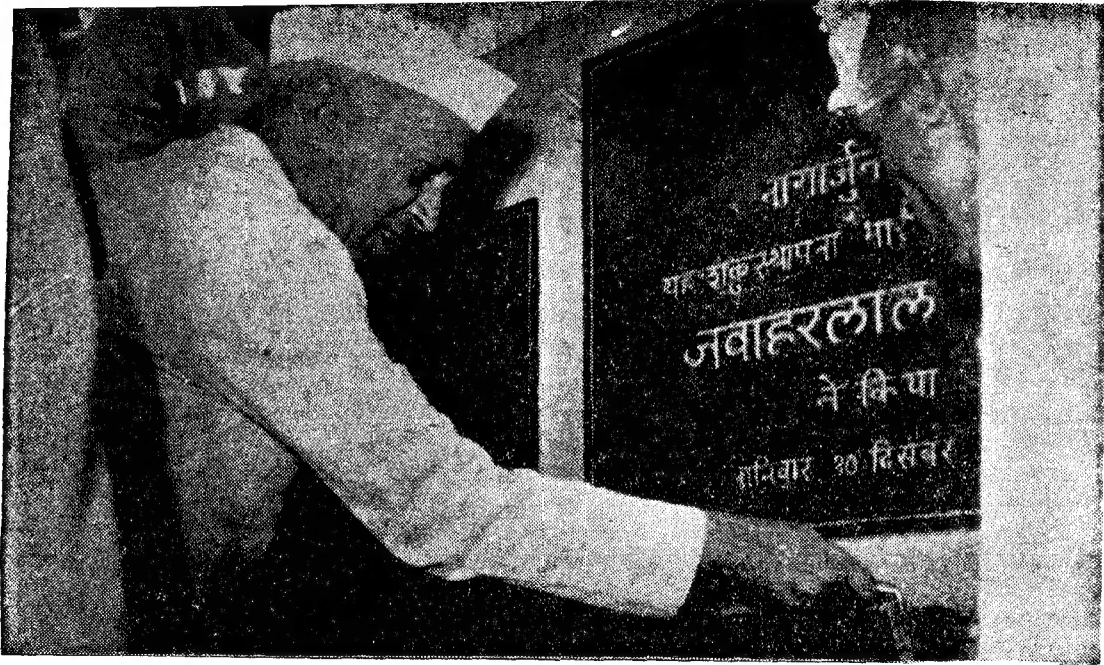 नागार्जुन
यह शंकुस्थापना
जवाहरलाल
ने किया
शनिवार १० दिसंबर